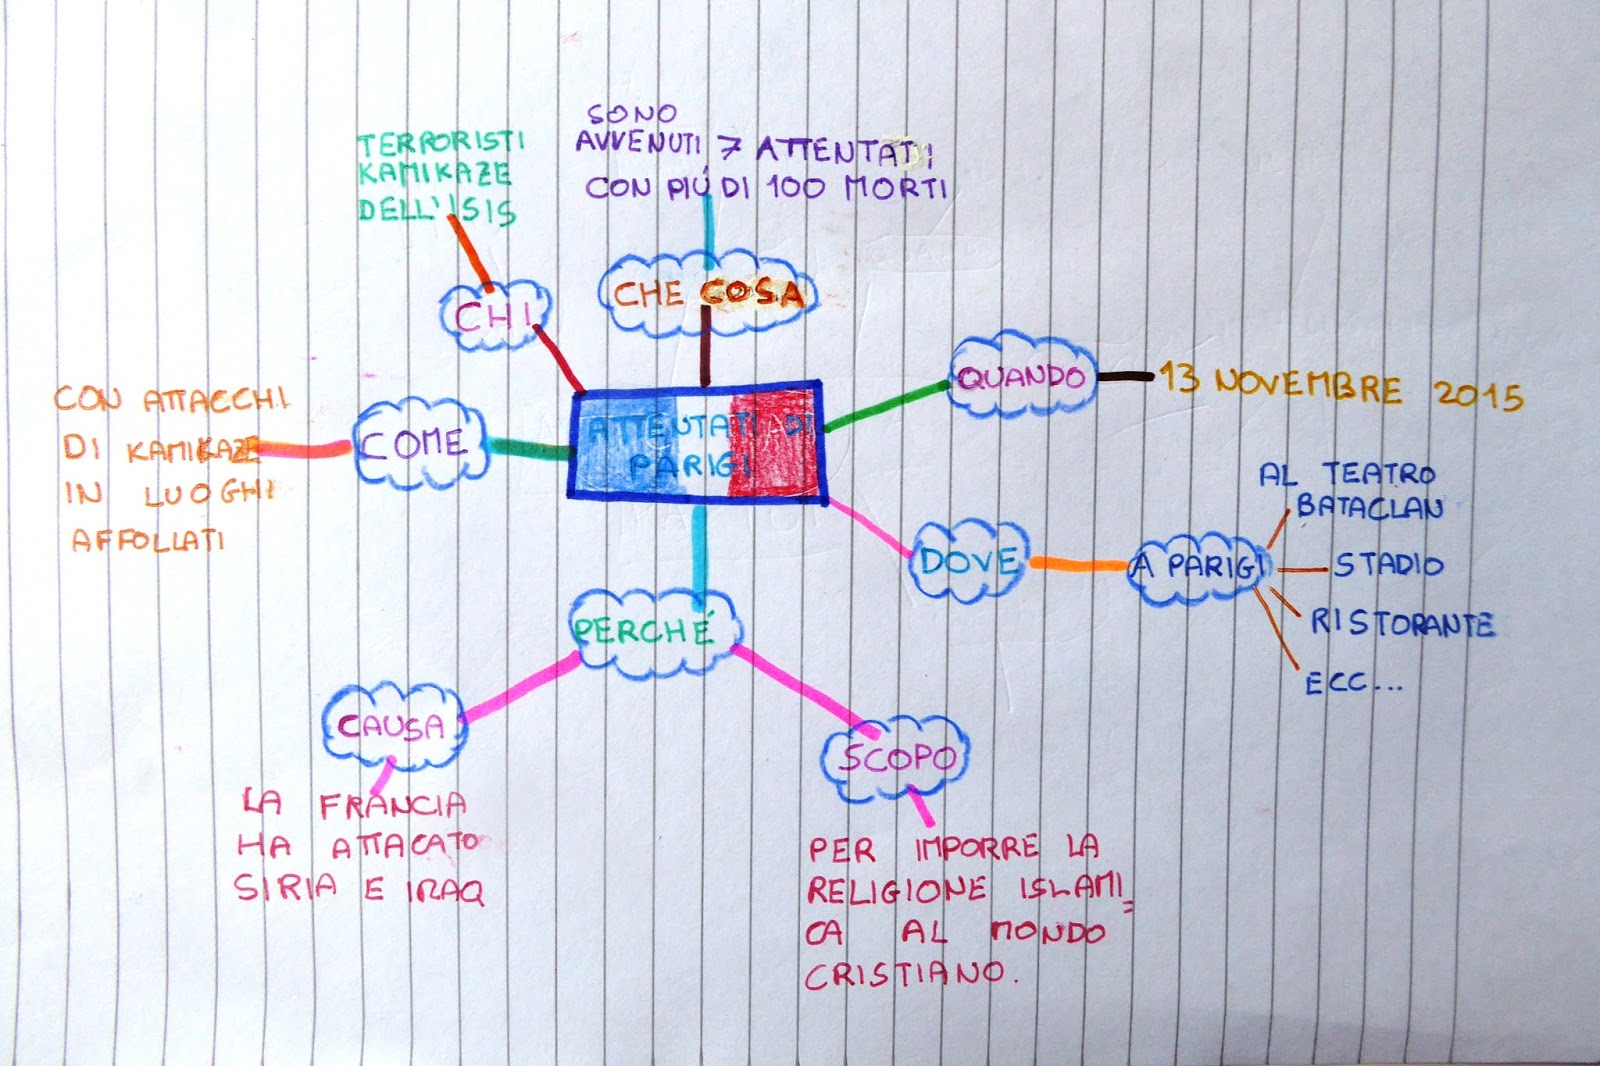 SONO
AVVENUTI 7 ATTENTATI
CON PIÚ DI 100 MORTI
TERRORISTI
KAMIKAZE
DELL'ISIS
CHE COSA
CHI
QUANDO
13 NOVEMBRE 2015
CON ATTACCHI
DI KAMIKAZE
IN LUOGHI
AFFOLLATI
COME
ATTENTATI DI
PARIGI
DOVE
A PARIGI
AL TEATRO
BATACLAN
STADIO
RISTORANTE
ECC...
PERCHÉ
CAUSA
LA FRANCIA
HA ATTACATO
SIRIA E IRAQ
SCOPO
PER IMPORRE LA
RELIGIONE ISLAMI=
CA AL MONDO
CRISTIANO.